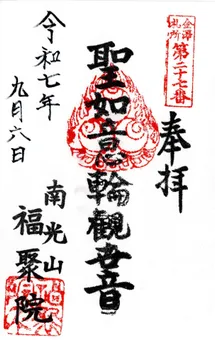 金澤
札所
第二十七番
奉拝
聖如意輪觀世音
令和七年
九月六日
南光山
福聚院